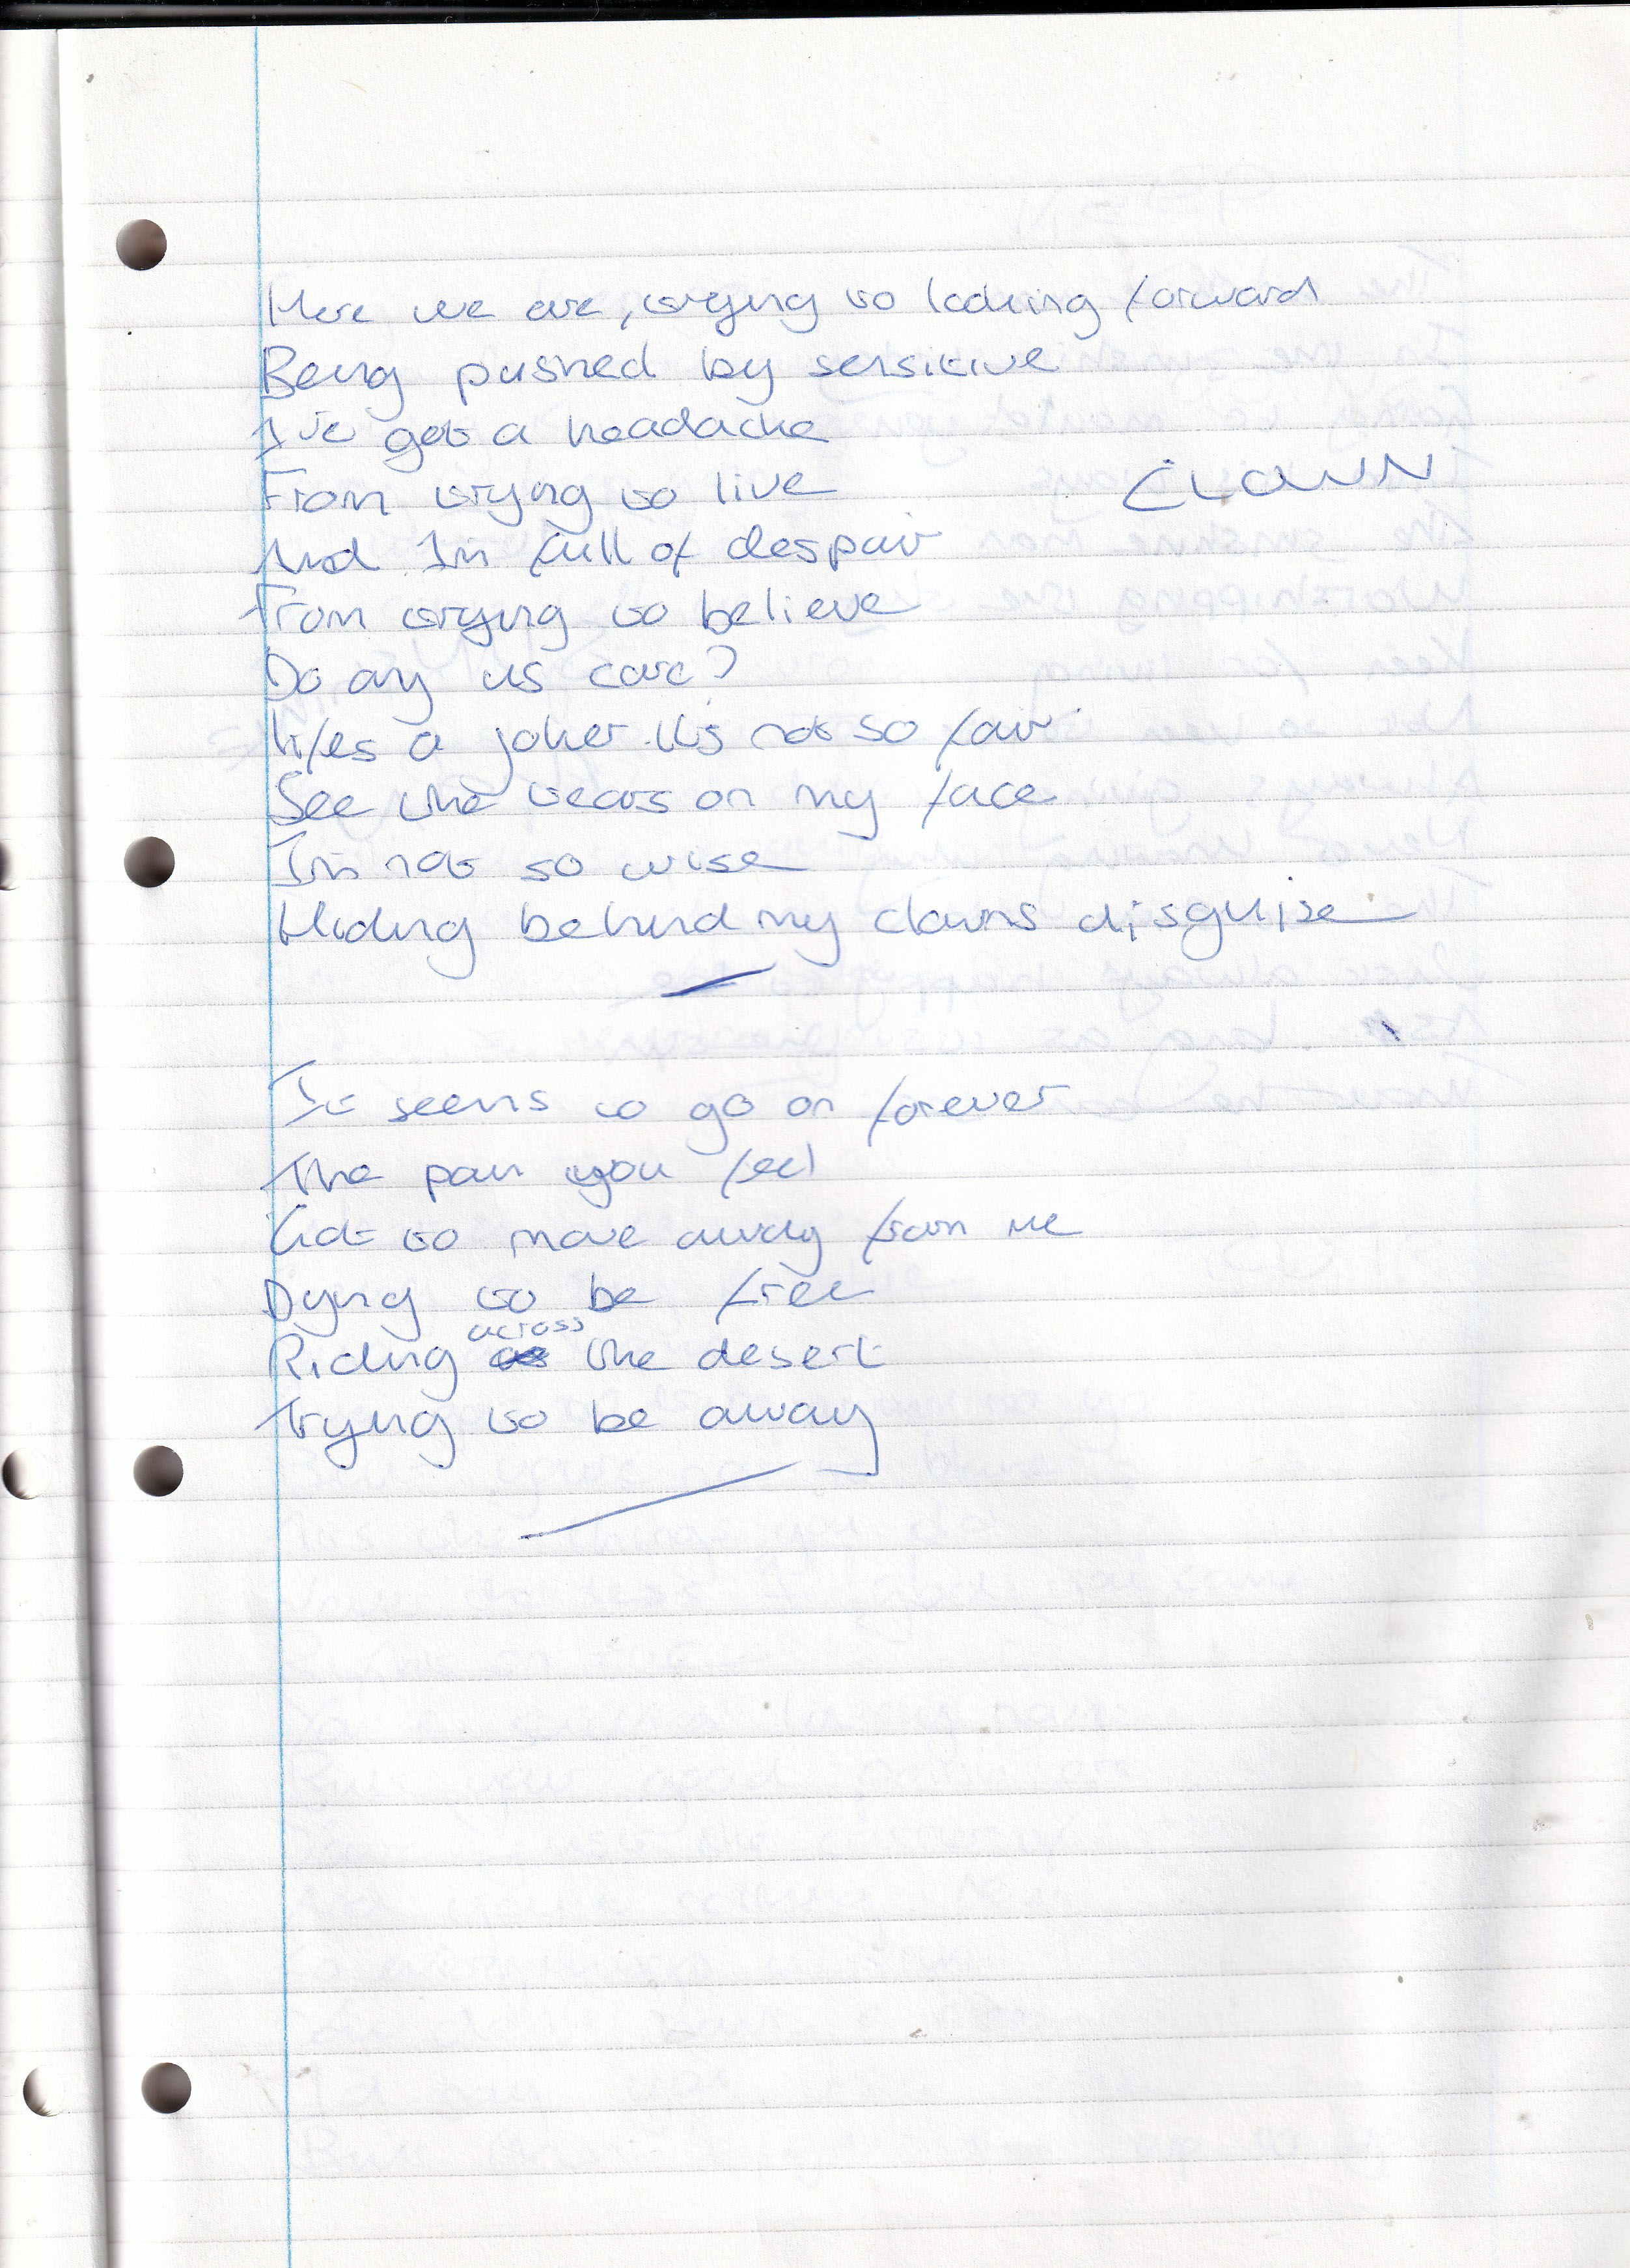 Here we are, trying to looking forward
Being pushed by sensitive
I've got a headache
From trying to live
CLOWN
And I'm full of despair
From trying to believe
Do any us care?
lifes a joker. It's not so fair
See the tears on my face
I'm not so wise
Hiding behind my clowns disguise
It seems to go on forever
The pain you feel
Got to move away from me
Dying to be free
Riding across the desert
Trying to be away